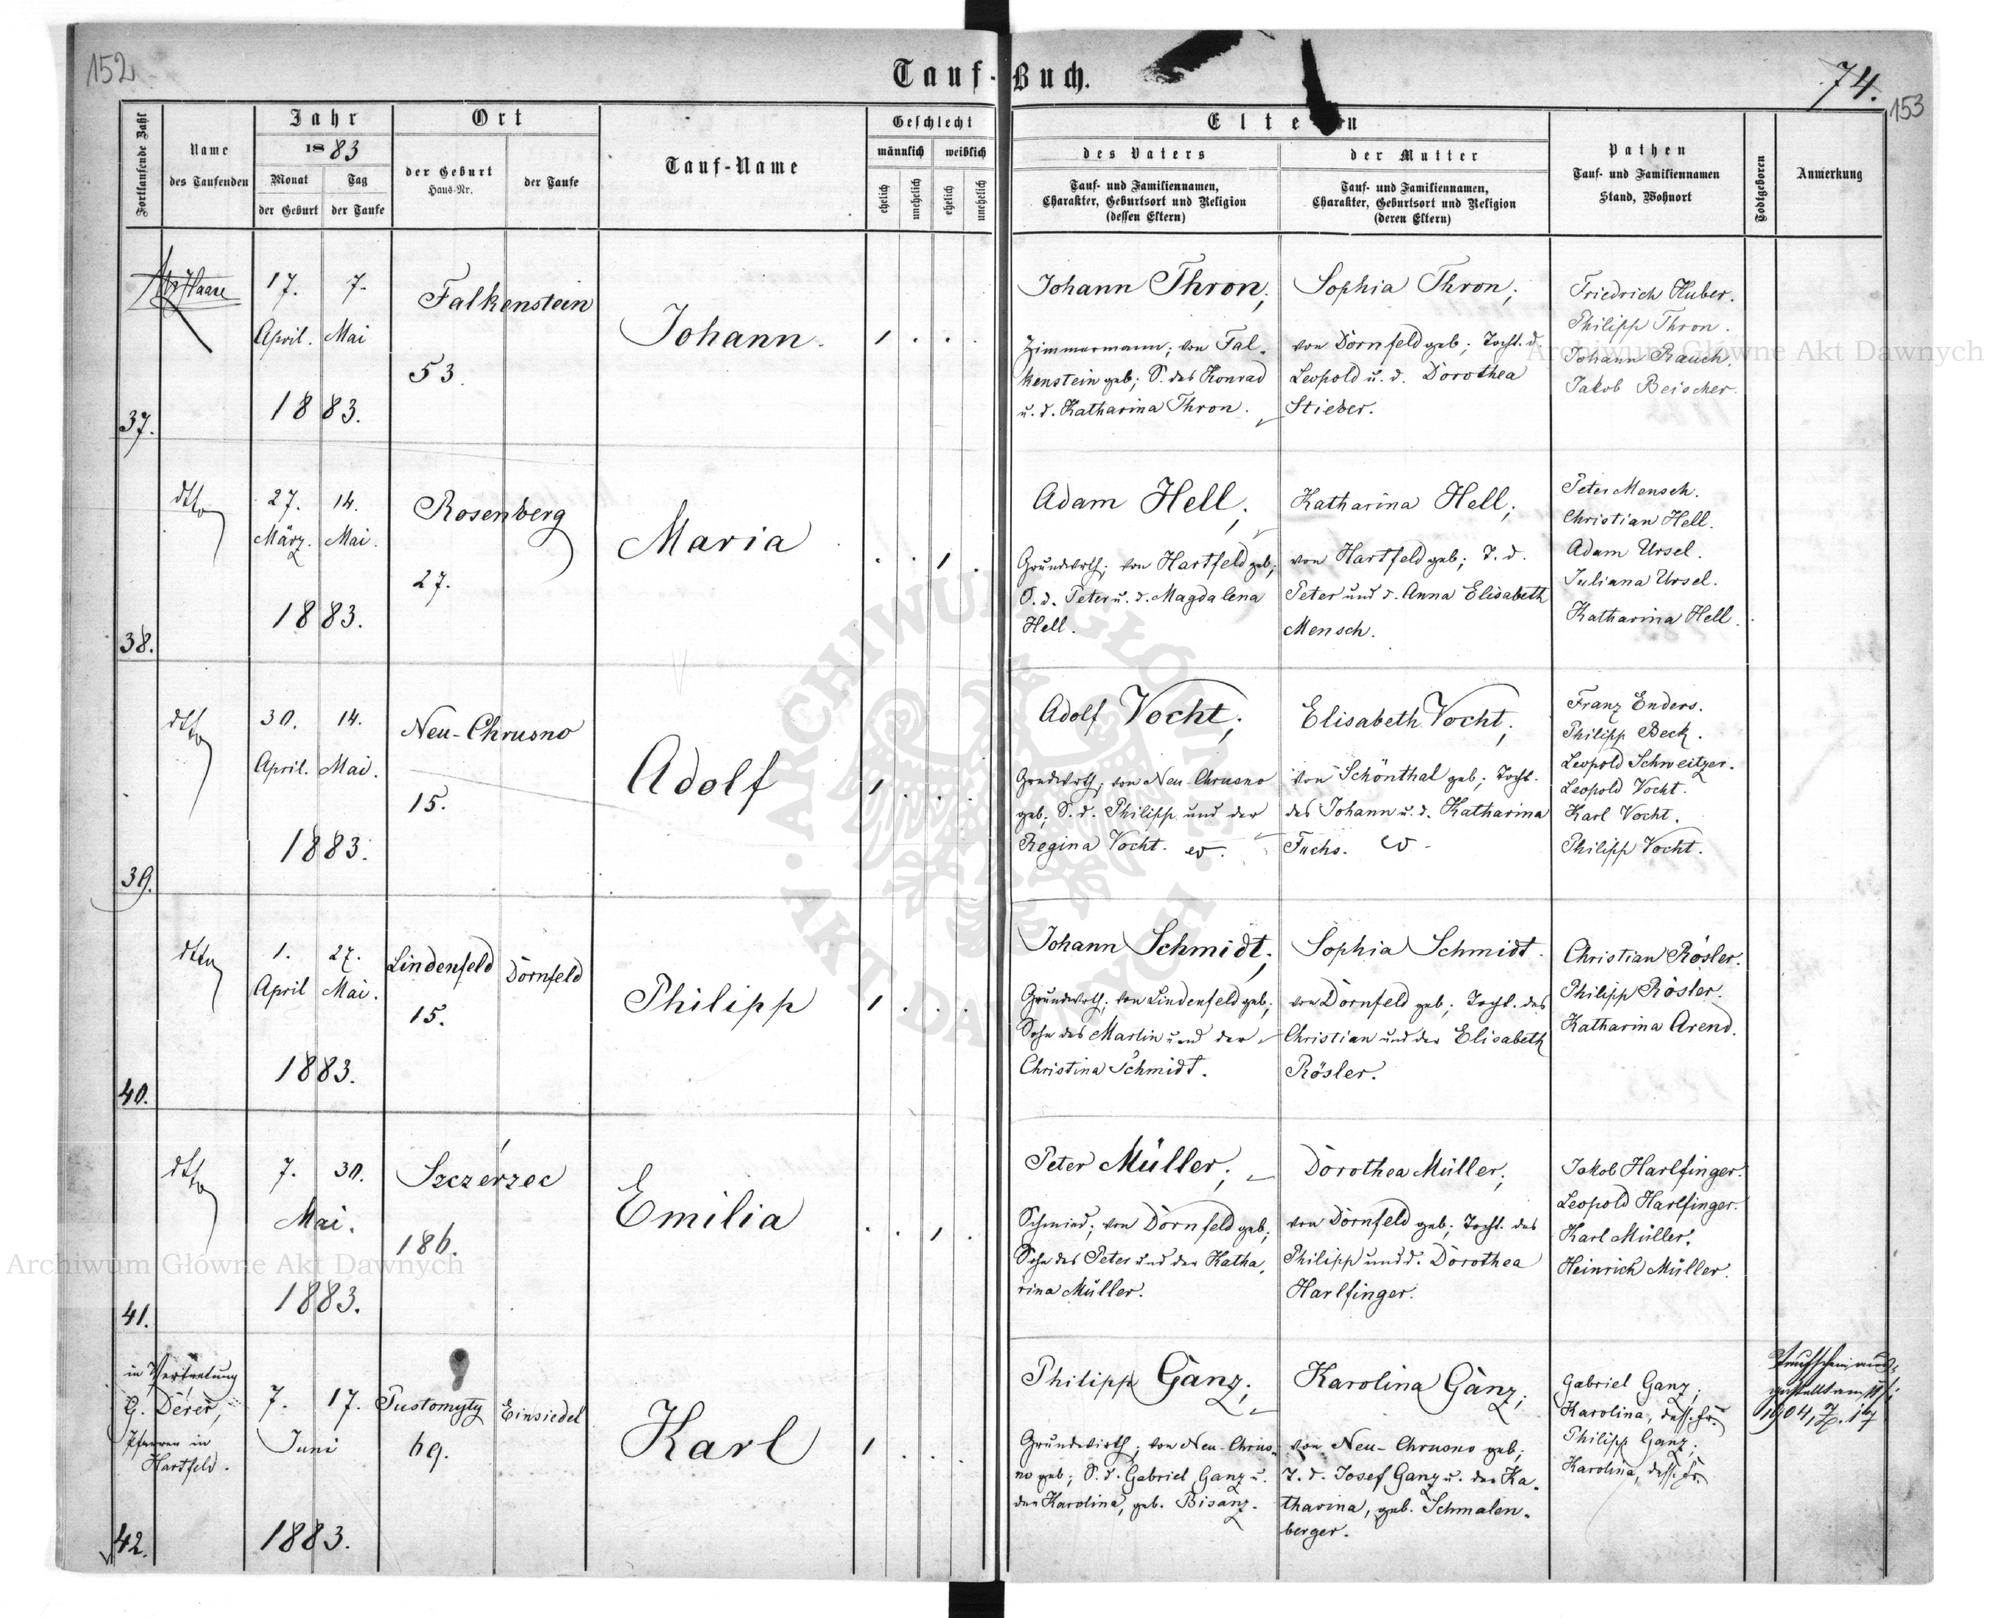 152
Tauf-Buch.
74.
153
Fortlaufende Zahl
Name
des Taufenden
Jahr
1883
Monat
der Geburt
Tag
der Taufe
Ort
der Geburt
Haus-Nr.
der Taufe
Tauf-Name
Geschlecht
männlich
weiblich
ehelich
unehelich
ehelich
unehelich
Eltern
des Vaters
Tauf- und Familiennamen,
Charakter, Geburtsort und Religion
(dessen Eltern)
der Mutter
Tauf- und Familiennamen,
Charakter, Geburtsort und Religion
(deren Eltern)
Pathen
Tauf- und Familiennamen
Stand, Wohnort
Todtgeboren
Anmerkung
37.
17. 7.
April. Mai
1883.
Falkenstein
53.
Johann
Johann Thron;
Zimmermann; von Fal-
kenstein geb; S. des Konrad
u. d. Katharina Thron.
Sophia Thron;
von Dornfeld geb; Tocht. d.
Leopold u. d. Dorothea
Stieber.
Friedrich Huber.
Philipp Thron.
Johann Rauch.
Jakob Beischer.
38.
dtto
27. 14.
März. Mai.
1883.
Rosenberg
27.
Maria
Adam Hell;
Grundwrth; von Hartfeld geb;
S. d. Peter u. d. Magdalena
Hell.
Katharina Hell;
von Hartfeld geb; T. d.
Peter und d. Anna Elisabeth
Mensch.
Peter Mensch.
Christian Hell.
Adam Ursel.
Juliana Ursel.
Katharina Hell.
39.
dtto
30. 14.
April. Mai.
1883.
Neu-Chrusno
15.
Adolf
Adolf Vocht;
Grndwrth; von Neu-Chrusno
geb; S. d. Philipp und der
Regina Vocht. ev.
Elisabeth Vocht;
von Schönthal geb; Tocht.
des Johann u. d. Katharina
Fuchs.
Franz Enders.
Philipp Beck.
Leopold Schweitzer.
Leopold Vocht.
Karl Vocht.
Philipp Vocht.
40.
dtto
1. 27.
April Mai.
1883.
Lindenfeld
15.
Dornfeld
Philipp
Johann Schmidt;
Grundwrth; von Lindenfeld geb;
Sohn des Martin und der
Christina Schmidt.
Sophia Schmidt.
von Dornfeld geb; Tocht. des
Christian und der Elisabeth
Rösler.
Christian Rösler.
Philipp Rösler.
Katharina Arend.
41.
dtto
7. 30.
Mai.
1883.
Szczerzec
186.
Emilia
Peter Müller;
Schmied; von Dornfeld geb;
Sohn des Peter und der Katha-
rina Müller.
Dorothea Müller;
von Dornfeld geb; Tocht. des
Philipp und d. Dorothea
Harlfinger.
Jakob Harlfinger.
Leopold Harlfinger.
Karl Müller.
Heinrich Müller.
42.
in Vertretung
G. Dérer,
Pfarrer in
Hartfeld.
7. 17.
Juni
1883.
Pustomyty
69.
Einsiedel
Karl
Philipp Ganz;
Grundwirth; von Neu-Chrus-
no geb; S. d. Gabriel Ganz u.
der Karolina, geb. Bisanz.
Karolina Ganz;
von Neu-Chrusno geb;
T. d. Josef Ganz u. der Ka-
tharina, geb. Schmalen-
berger.
Gabriel Ganz;
Karolina, dess. Fr.
Philipp Ganz;
Karolina, dess. Fr.
Taufschein aus-
gestellt am
1904, Z. 17
Archiwum Główne Akt Dawnych
Archiwum Główne Akt Dawnych
ARCHIWUM GŁÓWNE
AKT DAWNYCH